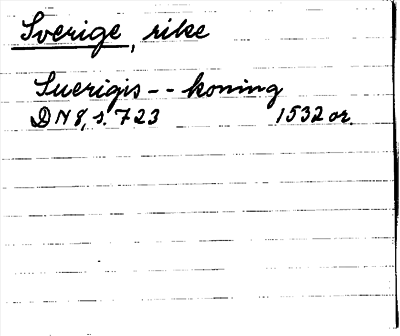 Sverige, rike
Suerigis -- koning
DN 8, s. 723 1532 or.